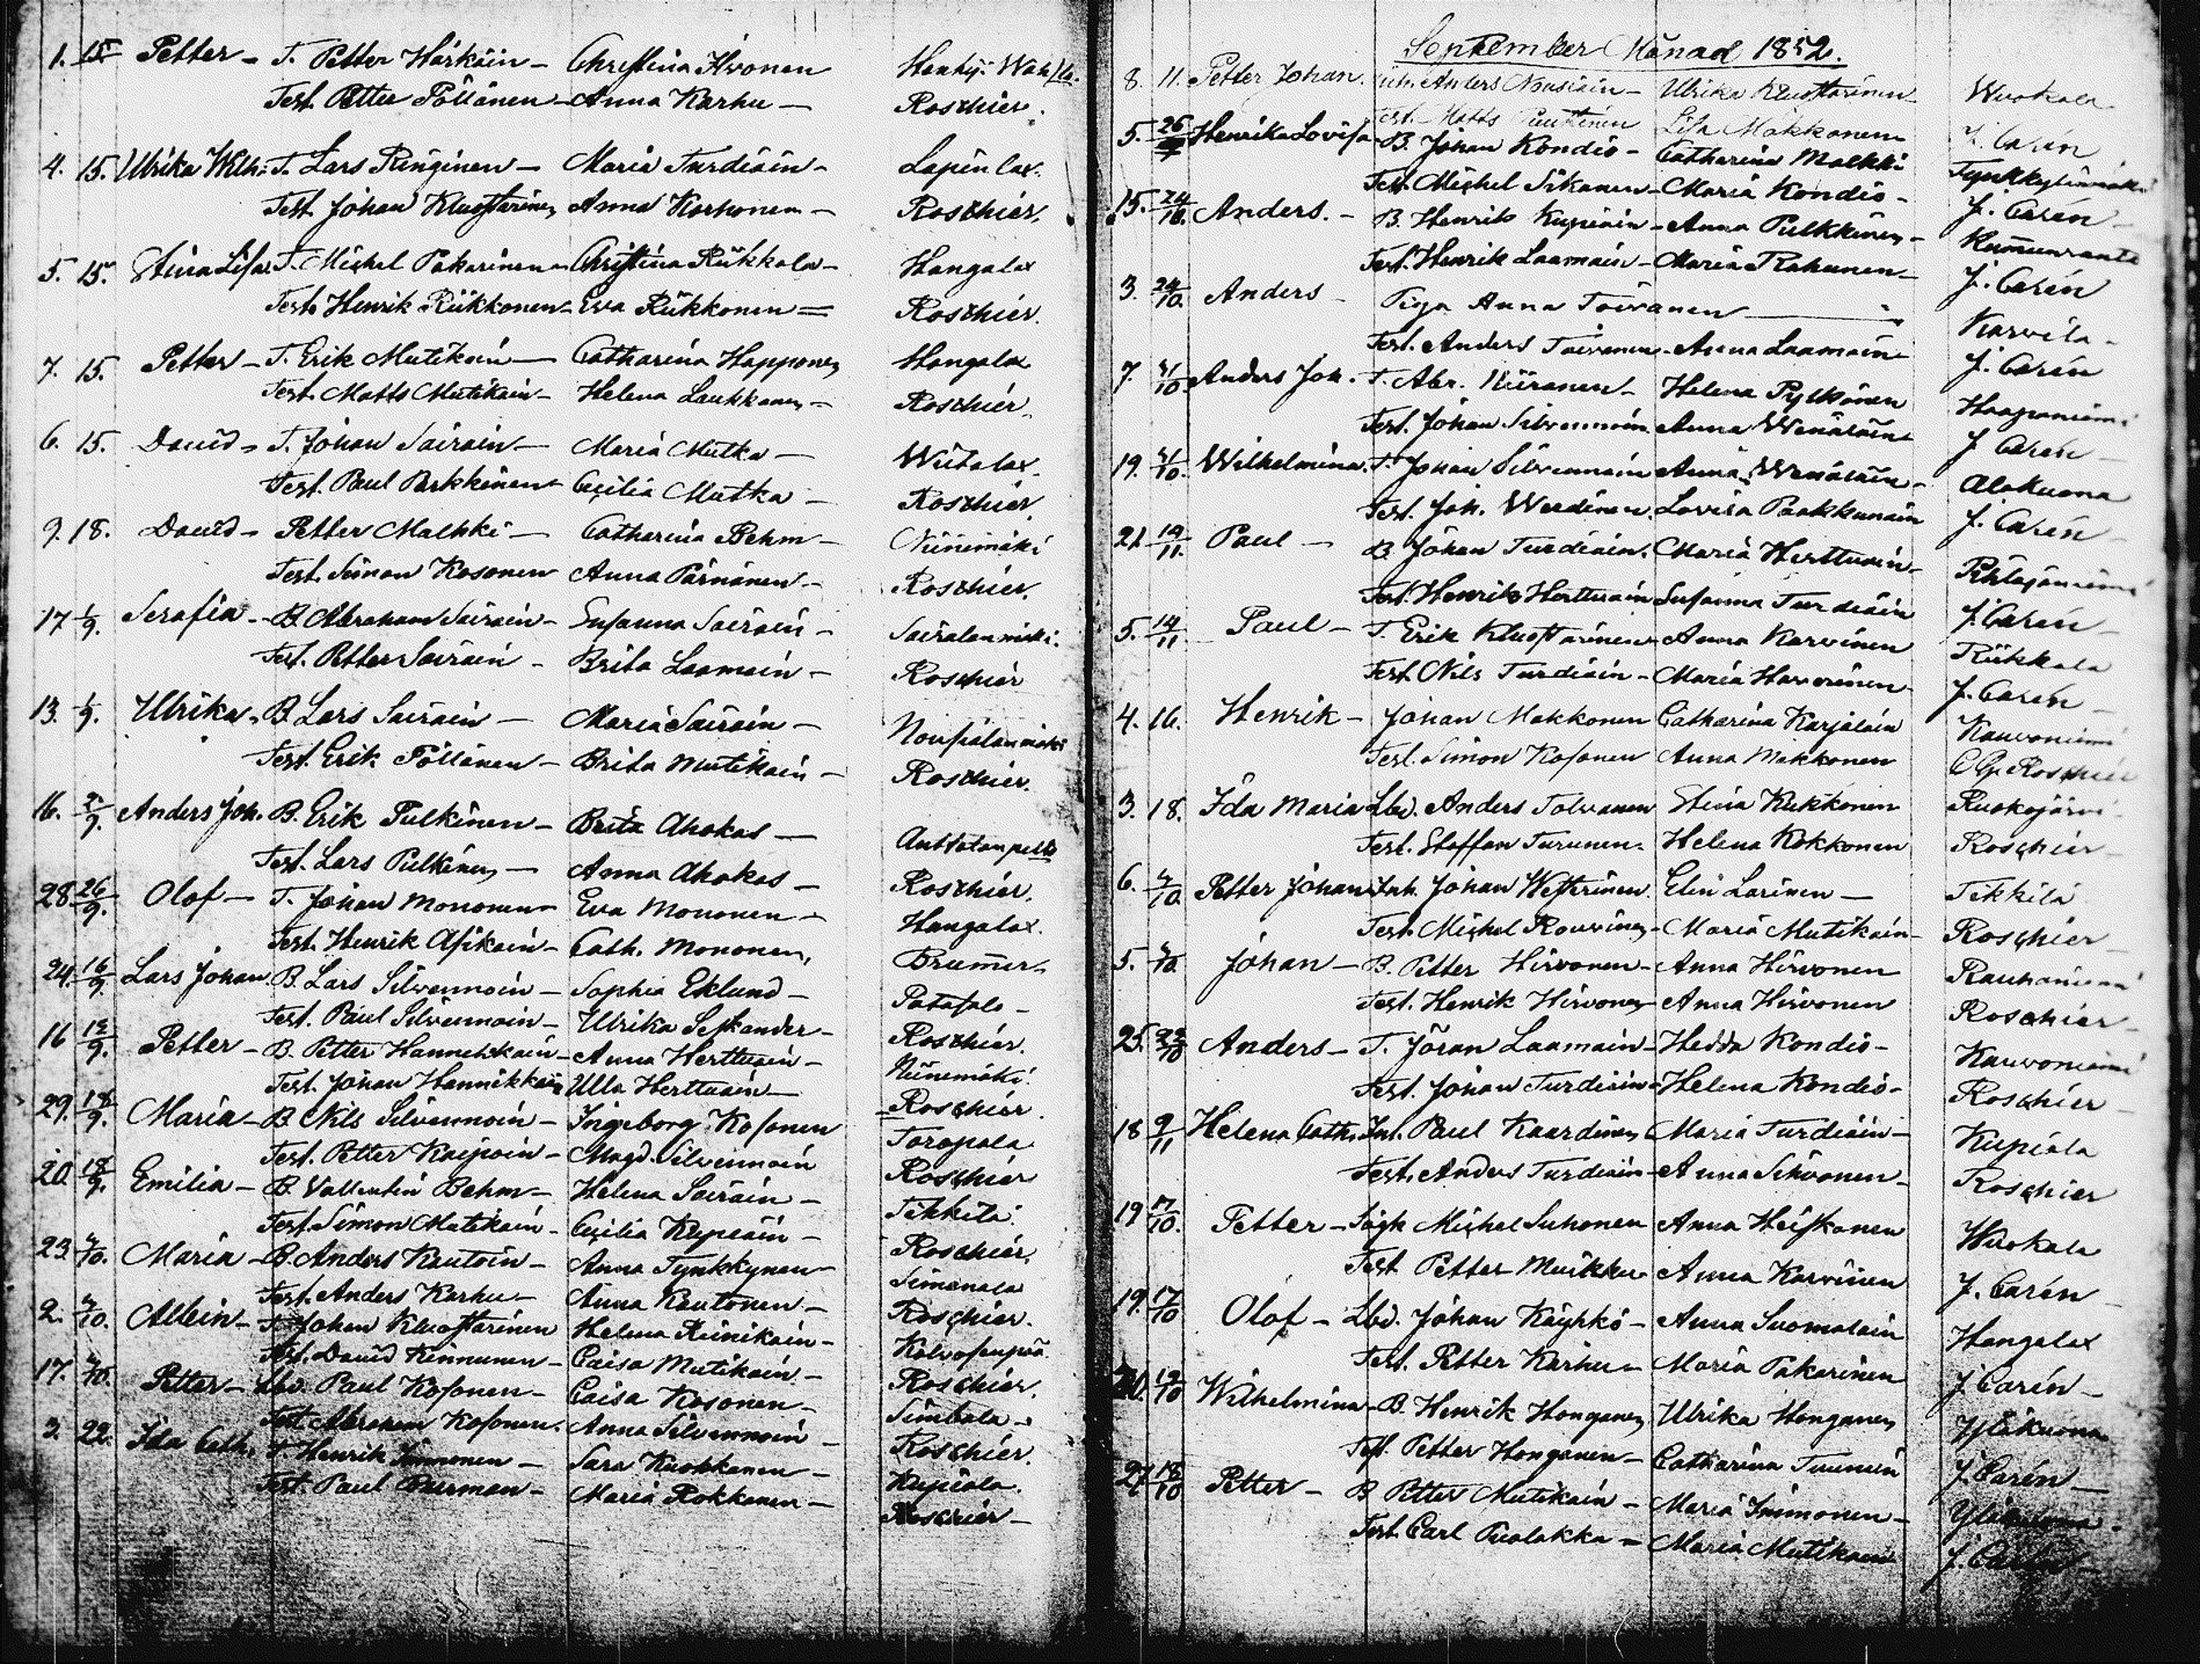 1. 15. Petter - T. Petter Härkäin - Christina Hivonen
Test. Petter Pöllänen - Anna Karhu - Roschier.
4. 15. Ulrika Wilh: T. Lars Ringinen - Maria Turdiain - Lapin lax.
Test. Johan Kluuftarinen Anna Korhonen - Roschier.
5. 15. Stina Lisa T. Michel Pakarinen - Christina Rükkola - Hangalax
Test. Henrik Rükkonen - Eva Rükkonen = Roschier.
7. 15. Petter - T. Erik Mutikain - Catharina Happonen Hangalax
Test. Matts Mutikain - Helena Laukkanen - Roschier.
6. 15. David - T. Johan Sairain - Maria Mutka - Wiitalax.
Test. Paul Parkkinen - Cecilia Mutka - Roschier.
9. 18. David - Petter Malkki - Catharina Behm - Niinimäki
Test. Simon Kosonen Anna Pärnänen - Roschier.
17 1/9. Serafia - B. Abraham Sairain - Susanna Sairain - Sairalanmäki.
Test. Petter Sairain - Brita Laamain - Roschier
13. 1/9. Ulrika - B. Lars Sairain - Maria Sairain -
Test. Erik Pöllänen - Brita Mutikain - Roschier.
16. 2/9. Anders Joh. B. Erik Pulkinen - Brita Ahokas -
Test. Lars Pulkinen - Anna Ahokas - Roschier.
28. 26/9. Olof - T. Johan Mononen - Eva Mononen - Hangalax.
Test. Henrik Asikain - Cath. Mononen, Brumer -
24. 16/9. Lars Johan B. Lars Silvennoin - Sophia Eklund - Patasalo -
Test. Paul Silvennoin - Ulrika Seskander - Roschier.
16 12/9. Petter - B. Petter Hannikkain - Anna Herttuain - Niinimäki.
Test. Johan Hannikkain Ulla Herttuain - Roschier.
29. 18/9. Maria - B. Nils Silvennoin - Ingeborg Kosonen Toropala
Test. Petter Kaipain - Magd. Silvennoin Roschier
20. 18/9. Emilia - B. Vallentin Behm - Helena Sairain - Tikkila.
Test. Simon Mutikain - Cecilia Kupiain - Roschier.
23. 4/10. Maria - B. Anders Kautoin - Anna Tynkkynen Simanala
Test. Anders Karhu - Anna Kautonen - Roschier.
2. 4/10. Albin - T. Johan Kluuftarinen Helena Reinikain -
Test. David Kinnunen - Caisa Mutikain - Roschier.
17. 4/10. Petter - Lbd. Paul Kosonen - Caisa Kosonen -
Test. Abraham Kosonen. Anna Silvennoin - Roschier.
3. 22. Ida Cath. T. Henrik Immonen - Sara Kuokkanen - Kupiala.
Test. Paul Purman - Maria Rokkanen - Roschier -
September Månad 1852.
8. 11. Petter Johan. Inh. Anders Nousiain - Ulrika Kluuftarinen Wuokala
Test. Matts Puustinen Lisa Makkonen J. Carén
5. 26 Henrika Lovisa - B. Johan Kondio - Catharina Malkki
Test. Michel Sikanen - Maria Kondio - J. Carén
15. 24/10. Anders. - B. Henrik Kupiain - Anna Pulkkinen - Kummunranta
Test. Henrik Laamain - Maria Rahunen - J. Carén
3. 24/10. Anders - Piga Anna Toivanen - Karvila -
Test. Anders Toivanen - Anna Laamain - J. Carén
7. 4/10 Anders Joh. T. Abr. Niiranen - Helena Pylkönen Haapaniemi
Test. Johan Silvennoin Anna Wenäläin J. Carén
19. 4/10. Wilhelmina. T. Johan Silvennoin Anna Wenäläin - Alakuona
Test. Joh. Werdinen. Lovisa Paakkunain J. Carén
21. 14/11. Paul - B. Johan Turdiain. Maria Herttuain -
Test. Henrik Herttuain Susanna Turdiain J. Carén -
5. 14/11. Paul - T. Erik Kluuftarinen - Anna Karvinen Rükkala
Test. Nils Turdiain - Maria Havorinen - J. Carén
4. 16. Henrik - Johan Makkonen Catharina Karjalain Kauvoniemi
Test. Simon Kosonen Anna Makkonen C. G. Roschier
3. 18. Ida Maria Lbd. Anders Tolvanen Stina Kukkonen Ruokojärvi
Test. Staffan Turunen. Helena Kokkonen Roschier -
6. 4/10. Petter Johan Inh. Johan Westerinen. Elin Larinen - Tikkila
Test. Michel Rouvinen - Maria Mutikain - Roschier -
5. 4/10. Johan - B. Petter Hirvonen - Anna Hirvonen Rauhaniemi
Test. Henrik Hirvonen - Anna Hirvonen Roschier -
25. 22/10 Anders - T. Jöran Laamain - Hedda Kondio - Kauvoniemi
Test. Johan Turdiain - Helena Kondio - Roschier -
18 9/11 Helena Cath. Inh. Paul Kaardinen Maria Turdiain - Kupiala
Test. Anders Turdiain - Anna Sihvonen - Roschier
19 17/10. Petter - Michel Suhonen Anna Heiskanen Wuokala
Test. Petter Muikku - Anna Karvinen J. Carén -
19. 17/10 Olof - Lbd. Johan Käyhkö - Anna Suomalain Hangalax
Test. Petter Karhu - Maria Pakarinen J. Carén -
20. 19/10 Wilhelmina - B. Henrik Honganen Ulrika Honganen Yläkuona
Test. Petter Honganen - Catharina Tuunen J. Carén -
27. 18/10 Petter - B. Petter Mutikain - Maria Immonen - Yläkuona -
Test. Carl Puolakka - Maria Mutikain J. Carén